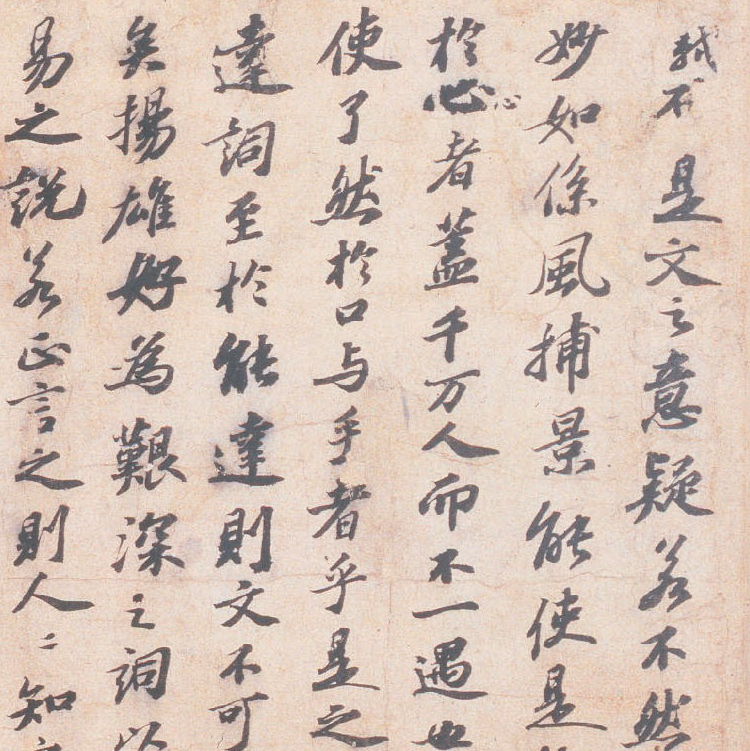 是文之意疑若不然
妙如係風捕景能使是
於心者蓋千万人而不一遇也
心
使了然於口与手者乎是之
達詞至於能達則文不可
矣揚雄好為艱深之詞以
易之説若正言之則人〻知